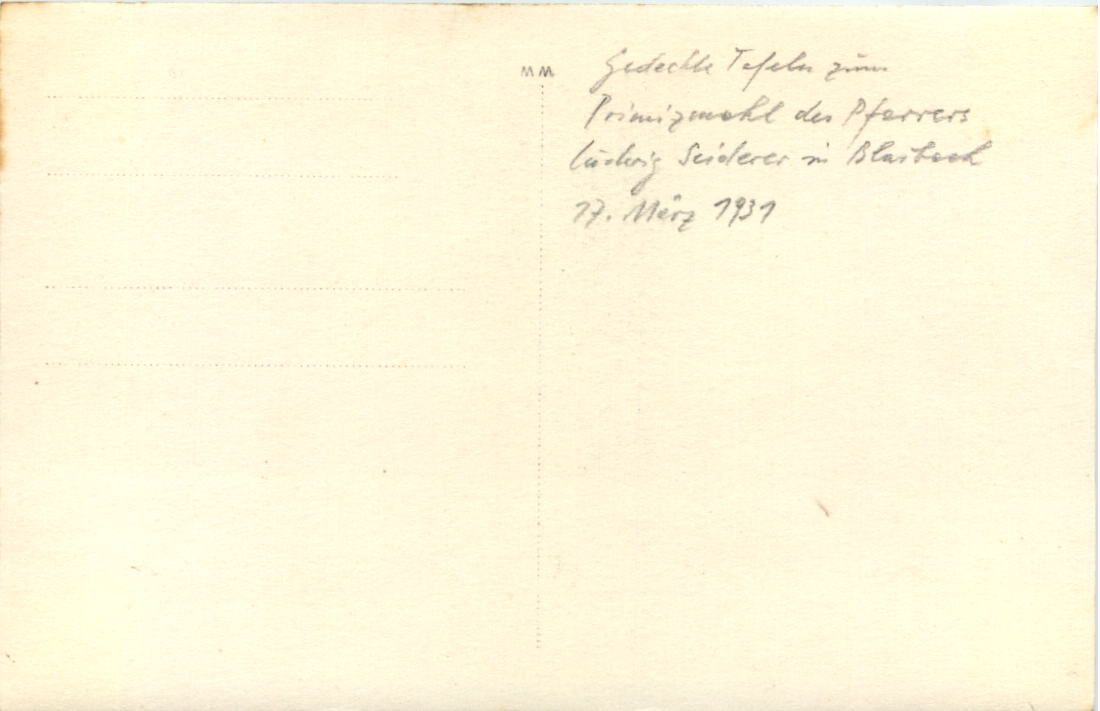 MM
Gedeckte Tafeln zum
Primizmahl des Pfarrers
Ludwig Seiderer in Blaibach
17. März 1931